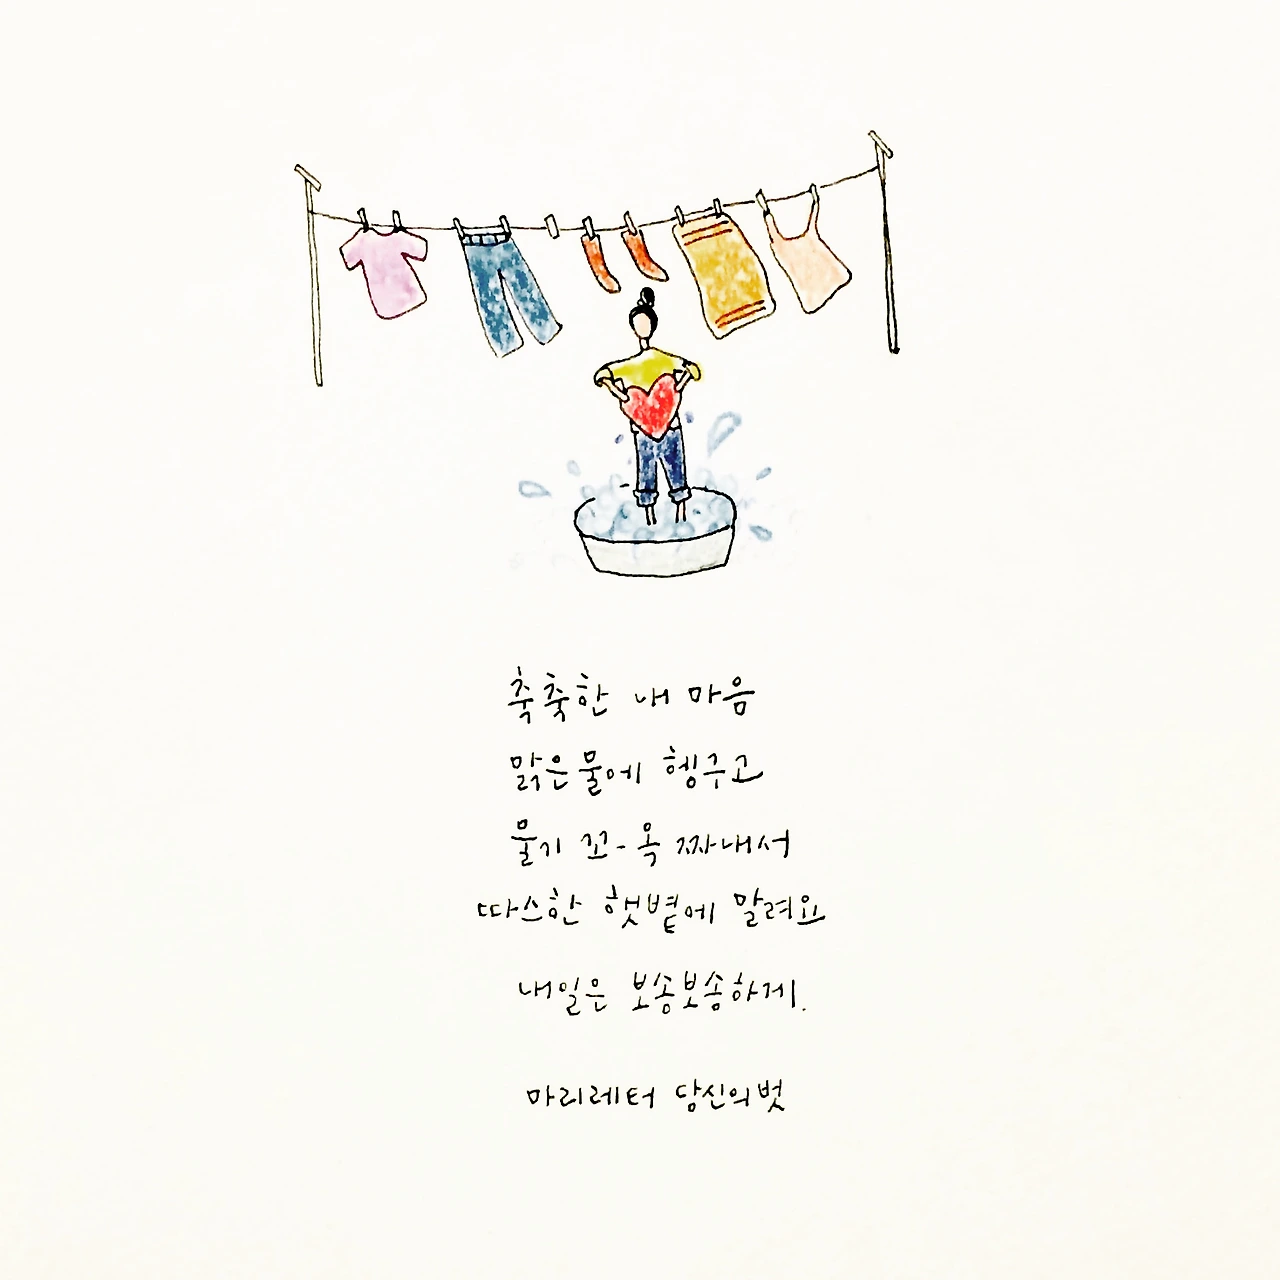 축축한 내 마음
맑은 물에 헹구고
물기 꼬-옥 짜내서
따스한 햇볕에 말려요
내일은 보송보송하게.
마리레터 당신의벗